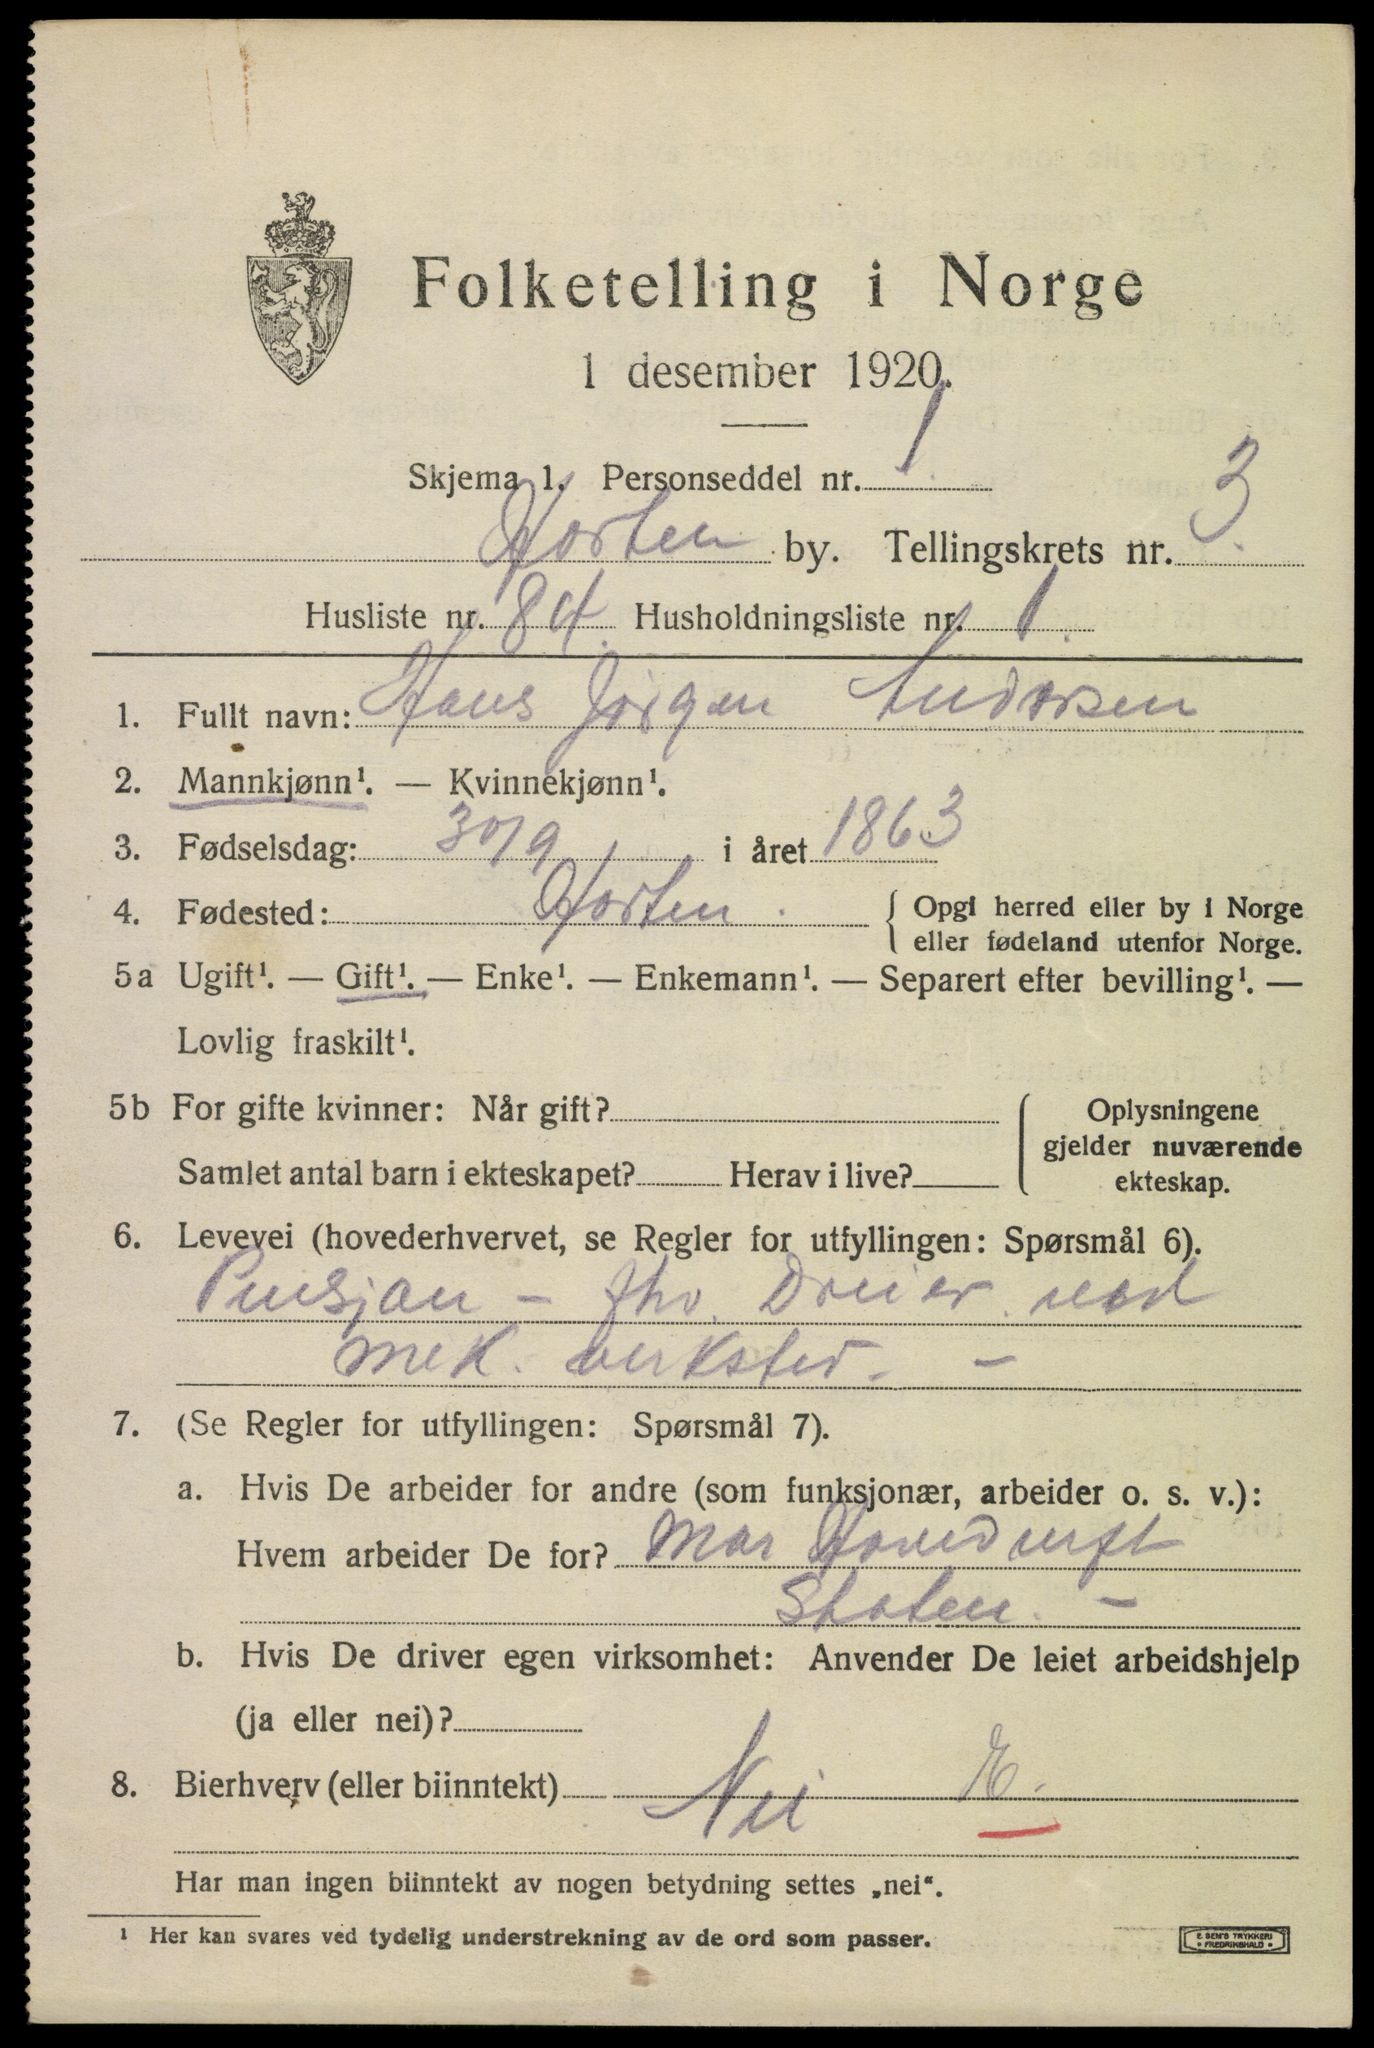 Folketelling i Norge
1 desember 1920.
Skjema 1. Personseddel nr. 1
Horten by. Tellingskrets nr. 3
Husliste nr. 84. Husholdningsliste nr. 1.
1. Fullt navn: Hans Jørgen Andersen
2. Mannkjønn¹. — Kvinnekjønn¹.
3. Fødselsdag: 30/9 i året 1863
4. Fødested: Horten. { Opgi herred eller by i Norge
eller fødeland utenfor Norge.
5a Ugift¹. — Gift¹. — Enke¹. — Enkemann¹. — Separert efter bevilling¹. —
Lovlig fraskilt¹.
5b For gifte kvinner: Når gift?
Samlet antal barn i ekteskapet? Herav i live?
{ Oplysningene
gjelder nuværende
ekteskap.
6. Levevei (hovederhvervet, se Regler for utfyllingen: Spørsmål 6).
Pensjon – fhv. Dreier ved
mek. verksted. –
7. (Se Regler for utfyllingen: Spørsmål 7).
a. Hvis De arbeider for andre (som funksjonær, arbeider o. s. v.):
Hvem arbeider De for? Mar Hovedverft
Staten. –
b. Hvis De driver egen virksomhet: Anvender De leiet arbeidshjelp
(ja eller nei)?
8. Bierhverv (eller biinntekt) Nei E.
Har man ingen biinntekt av nogen betydning settes „nei“.
¹ Her kan svares ved tydelig understrekning av de ord som passer.
E. SEM'S TRYKKERI
• FREDRIKSHALD •